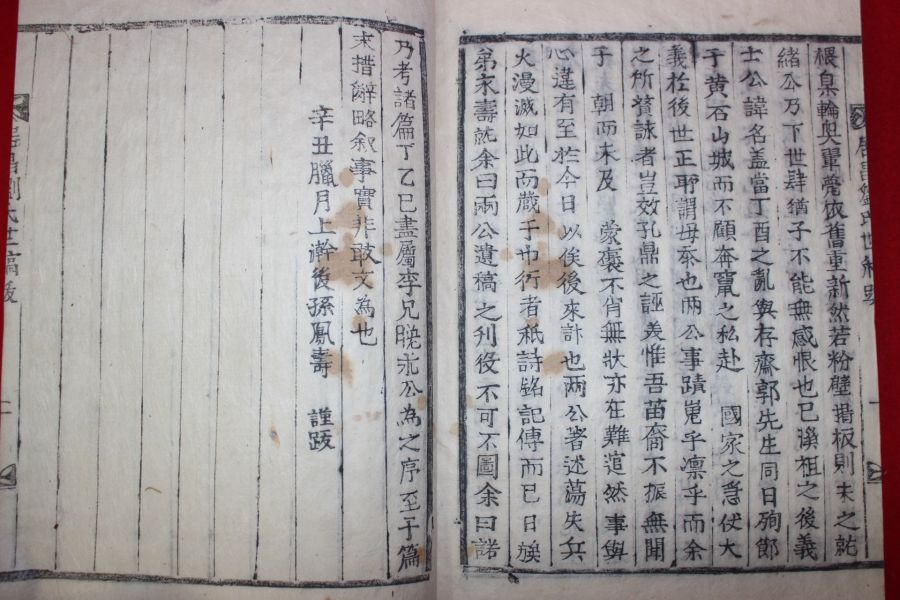 榱臬輪奐翬甍依舊重新然若粉壁揭板則未之就
緒公乃下世肆猶子不能無感恨也已溪祖之後義
士公諱名盖當丁酉之亂與存齋郭先生同日殉節
于黄石山城而不顧奔竄之私赴 國家之急仗大
義於後世正耶謂毋忝也兩公事蹟嵬乎凛乎而余
之所賛詠者豈效孔鼎之誣美惟吾苗裔不振無聞
于 朝而未及 蒙褒不肖無狀亦在難逭然事與
心違有至於今日以俟後來計也兩公著述蕩失兵
火漫滅如此而歲千市行者秪詩銘記傳而已日族
弟永壽就余曰兩公遺稿之刋役不可不圖余曰諾
乃考諸篇丁乙已盡屬李兄晩 公為之序至于篇
末措辭略叙事實非敢文為也
辛丑臘月上澣後孫鳳壽 謹跋
居昌劉氏世稿